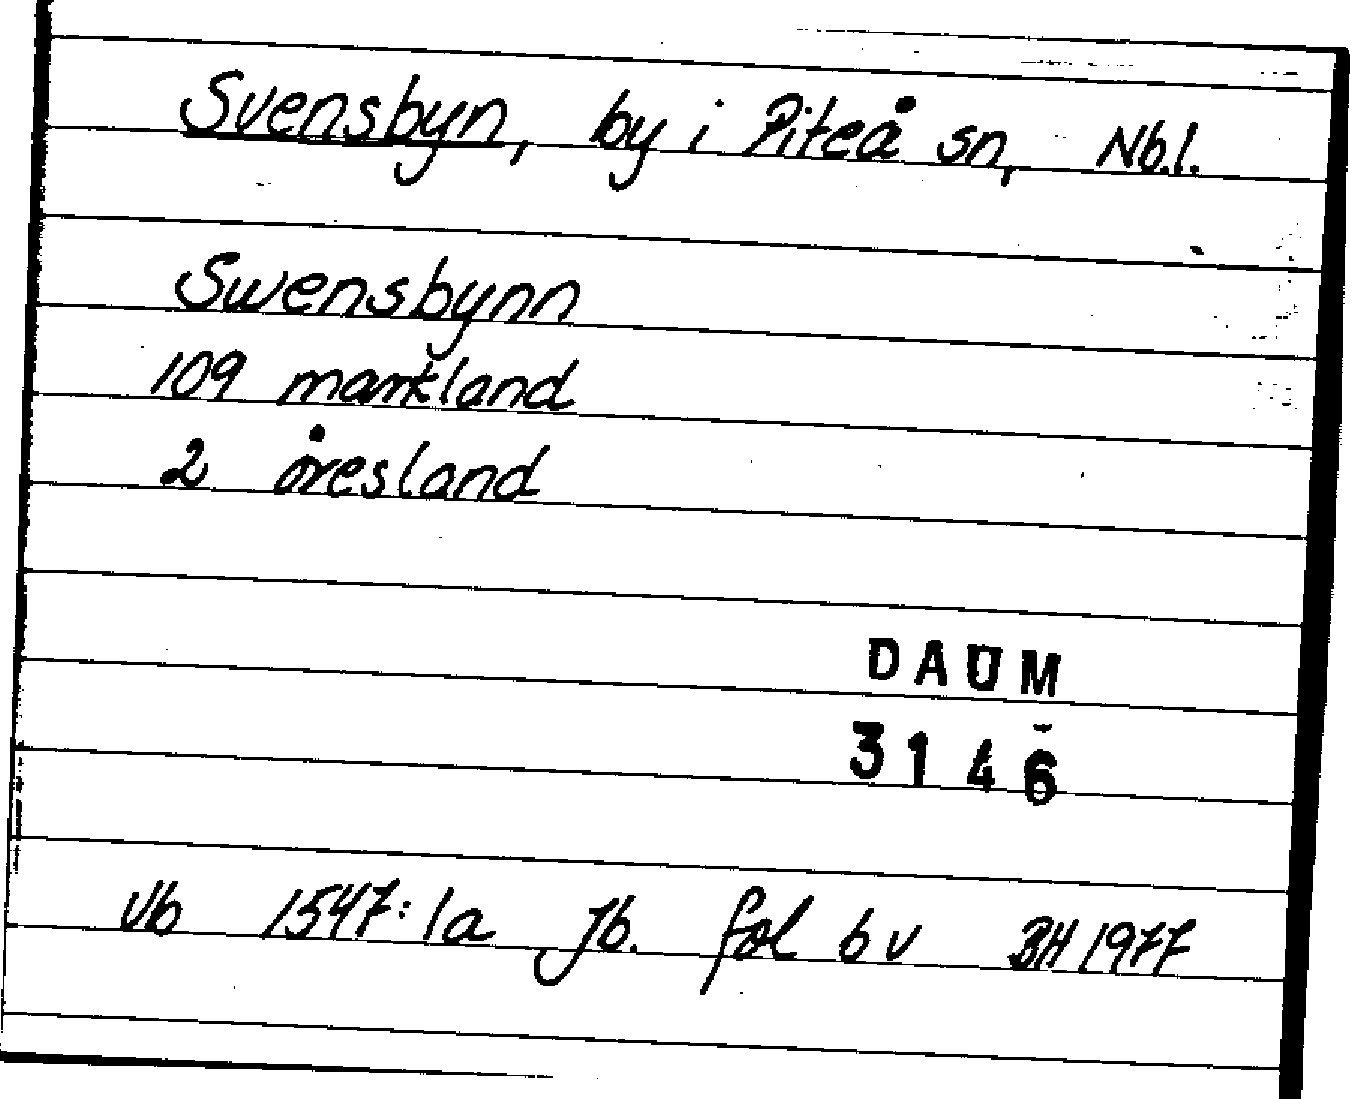 Svensbyn, by i Piteå sn, Nb.l.
Swensbynn
109 markland
2 öresland
DAUM
3146
Vb 1547:1a Jb. fol 6 v BH 1977